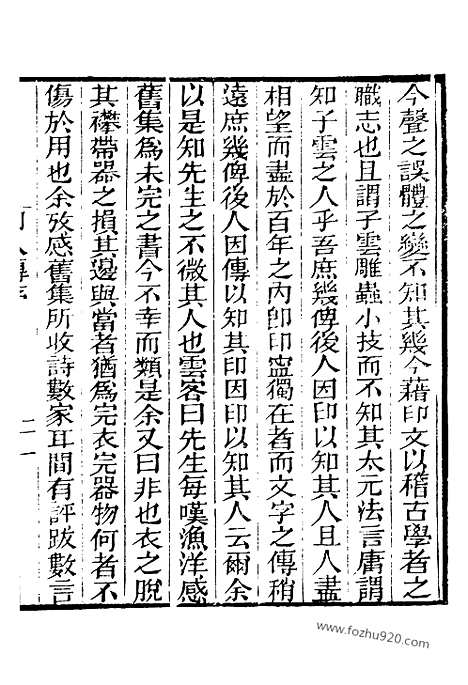 今聲之誤體之變不知其幾今藉印文以稽古學者之
職志也且謂子雲雕蟲小技而不知其太元法言庸謂
知子雲之人乎吾庶幾俾後人因印以知其人且人盡
相望而盡於百年之內卽印寍獨在者而文字之傳稍
遠庶幾俾後人因傳以知其印因印以知其人云爾余
以是知先生之不微其人也雲客曰先生每嘆漁洋感
舊集爲未完之書今不幸而類是余又曰非也衣之脫
其襻帶器之損其邊與當者猶爲完衣完器物何者不
傷於用也余攷感舊集所收詩數家耳間有評跋數言
印人傳序
二
www.fozhu920.com